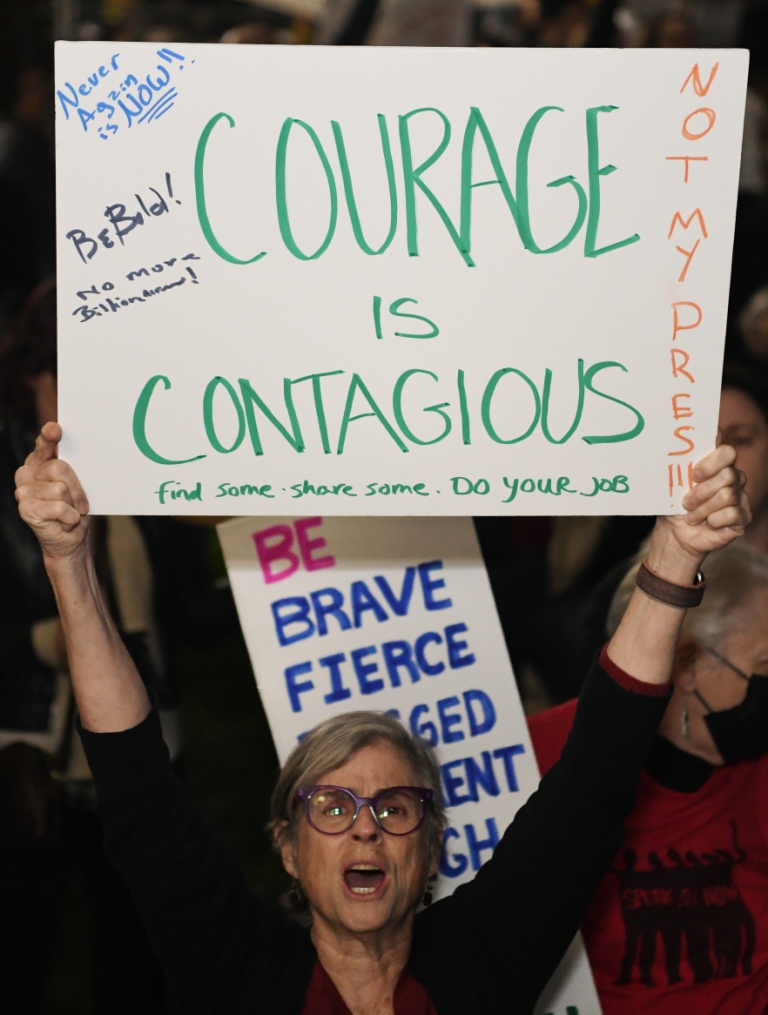 Never
Again
is NOW!!
BE Bold!
No more
Billionaires!
COURAGE
IS
CONTAGIOUS
find some. share some. DO YOUR JOB
NOT MY PRES!!!
BE
BRAVE
FIERCE
GED
ENT
GH
SPEAK OUT NOW